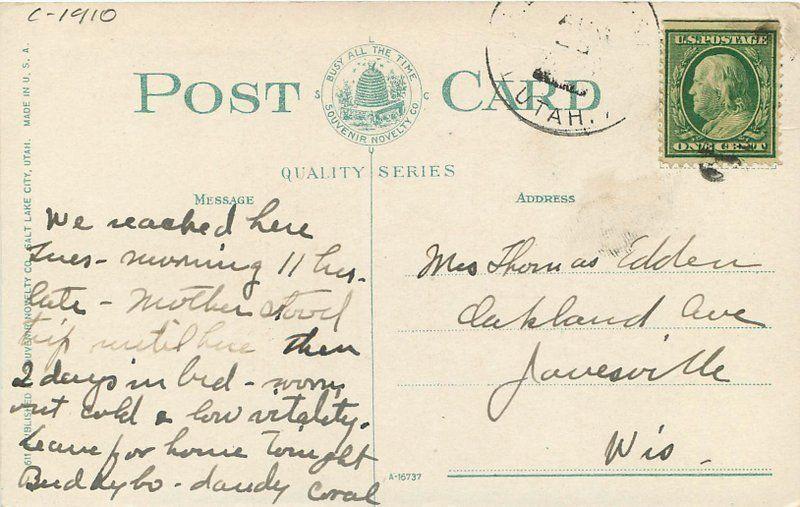 C-1910
POST CARD
BUSY ALL THE TIME
SOUVENIR NOVELTY CO.
S L C U
QUALITY SERIES
UTAH.
U.S. POSTAGE
ONE CENT
MESSAGE
We reached here
Tues- morning 11 hrs.
late - Mother stood
trip until here then
2 days in bed - worn
out cold & low vitality.
Leave for home tonight
Buddybo - dandy Coral
ADDRESS
Mrs Thomas Edden
Oakland Ave
Janesville
Wis.
A-16737
611 PUBLISHED SOUVENIR NOVELTY CO. SALT LAKE CITY, UTAH. MADE IN U. S. A.